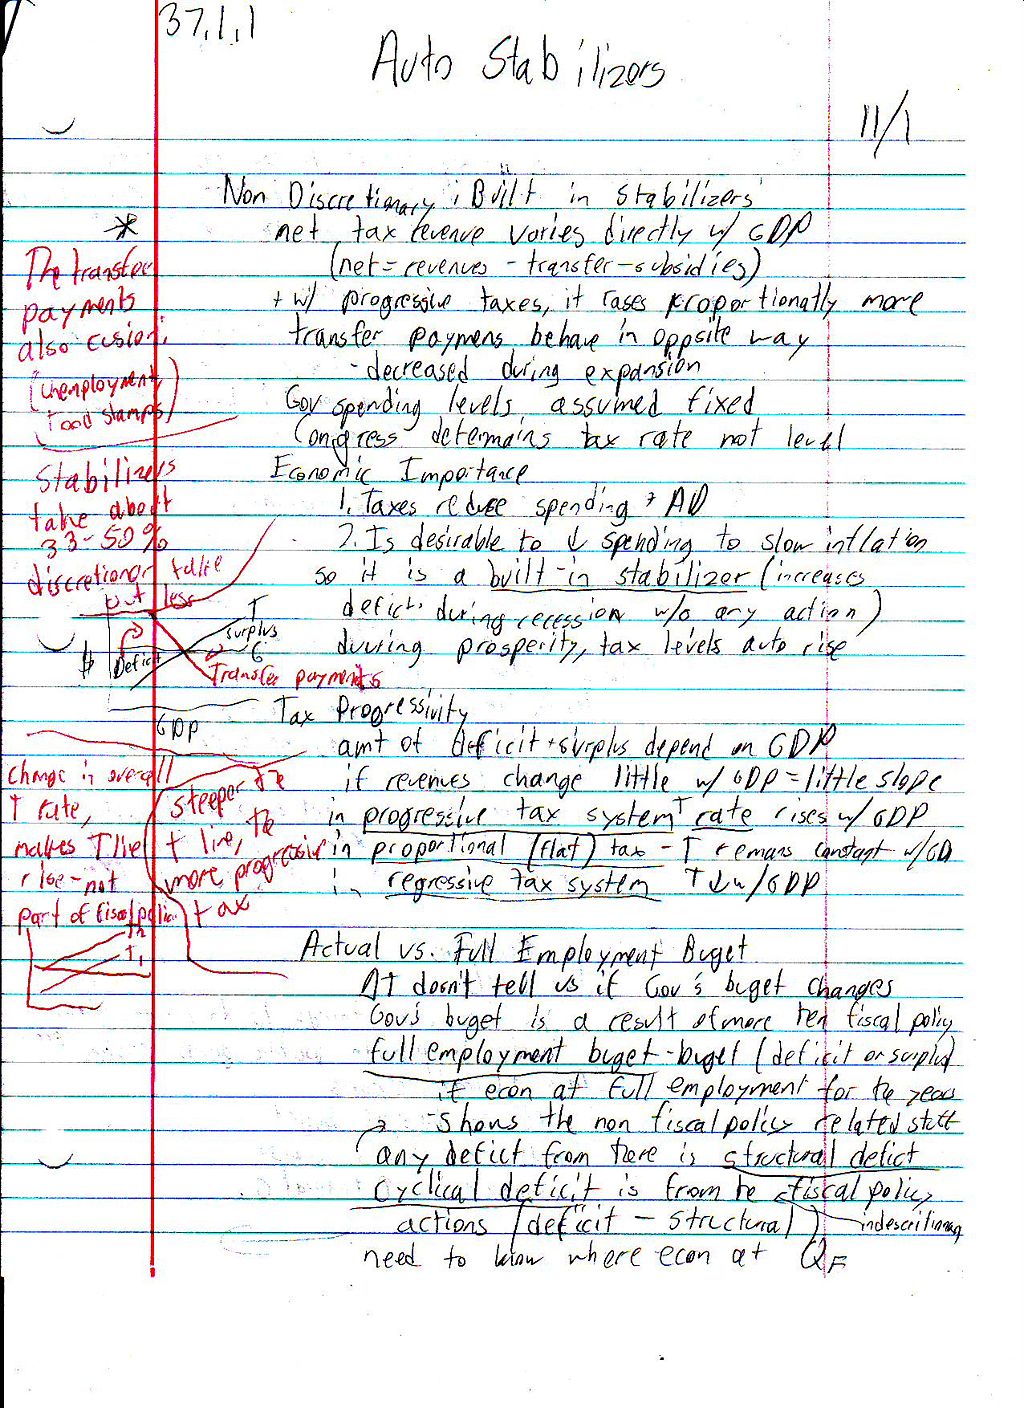 37.1.1
Auto Stabilizers
11/1
Non Discretionary; "Built in stabilizers"
net tax revenue varies directly w/ GDP
(net = revenues - transfer - subsidies)
+ w/ progressive taxes, it rases proportionatly more
transfer paymens behave in oppsite way
- decreased during expansion
Gov spending levels assumed fixed
Congress determains tax rate not level
Economic Importance
1. Taxes reduce spending + AD
2. Is desirable to ↓ spending to slow inflation
so it is a built-in stabilizer (increases
deficit during recession w/o any action)
during prosperity, tax levels auto rise
Tax Progressivity
amt of deficit + surplus depend on GDP
if revenues change little w/ GDP = little slope
in progressive tax system T rate rises w/ GDP
in proportional (flat) tax - T remans constant w/GD
in regressive tax system T↓ w/GDP
Actual vs. Full Employment Buget
AT don't tell us if Gov's buget changes
Gov's buget is a result of more then fiscal policy
full employment buget - buget (deficit or surplus)
if econ at full employment for the year
- shows the non fiscal policy related stuff
→ any defict from there is structural defict
Cyclical deficit is from the fiscal policy
actions (deficit - structural)
need to know where econ at QF
*
The transfer
payments
also cusion.
(unemployment
food stamps)
Stabilizers
take about
33-50%
discretionar take
out less
$
Deficit
T
surplus
G
Transfer payments
GDP
Change in overall
T rate,
makes T line
rise - not
part of fiscal polic
T2
T1
steeper the
t line, the
more progressive
tax